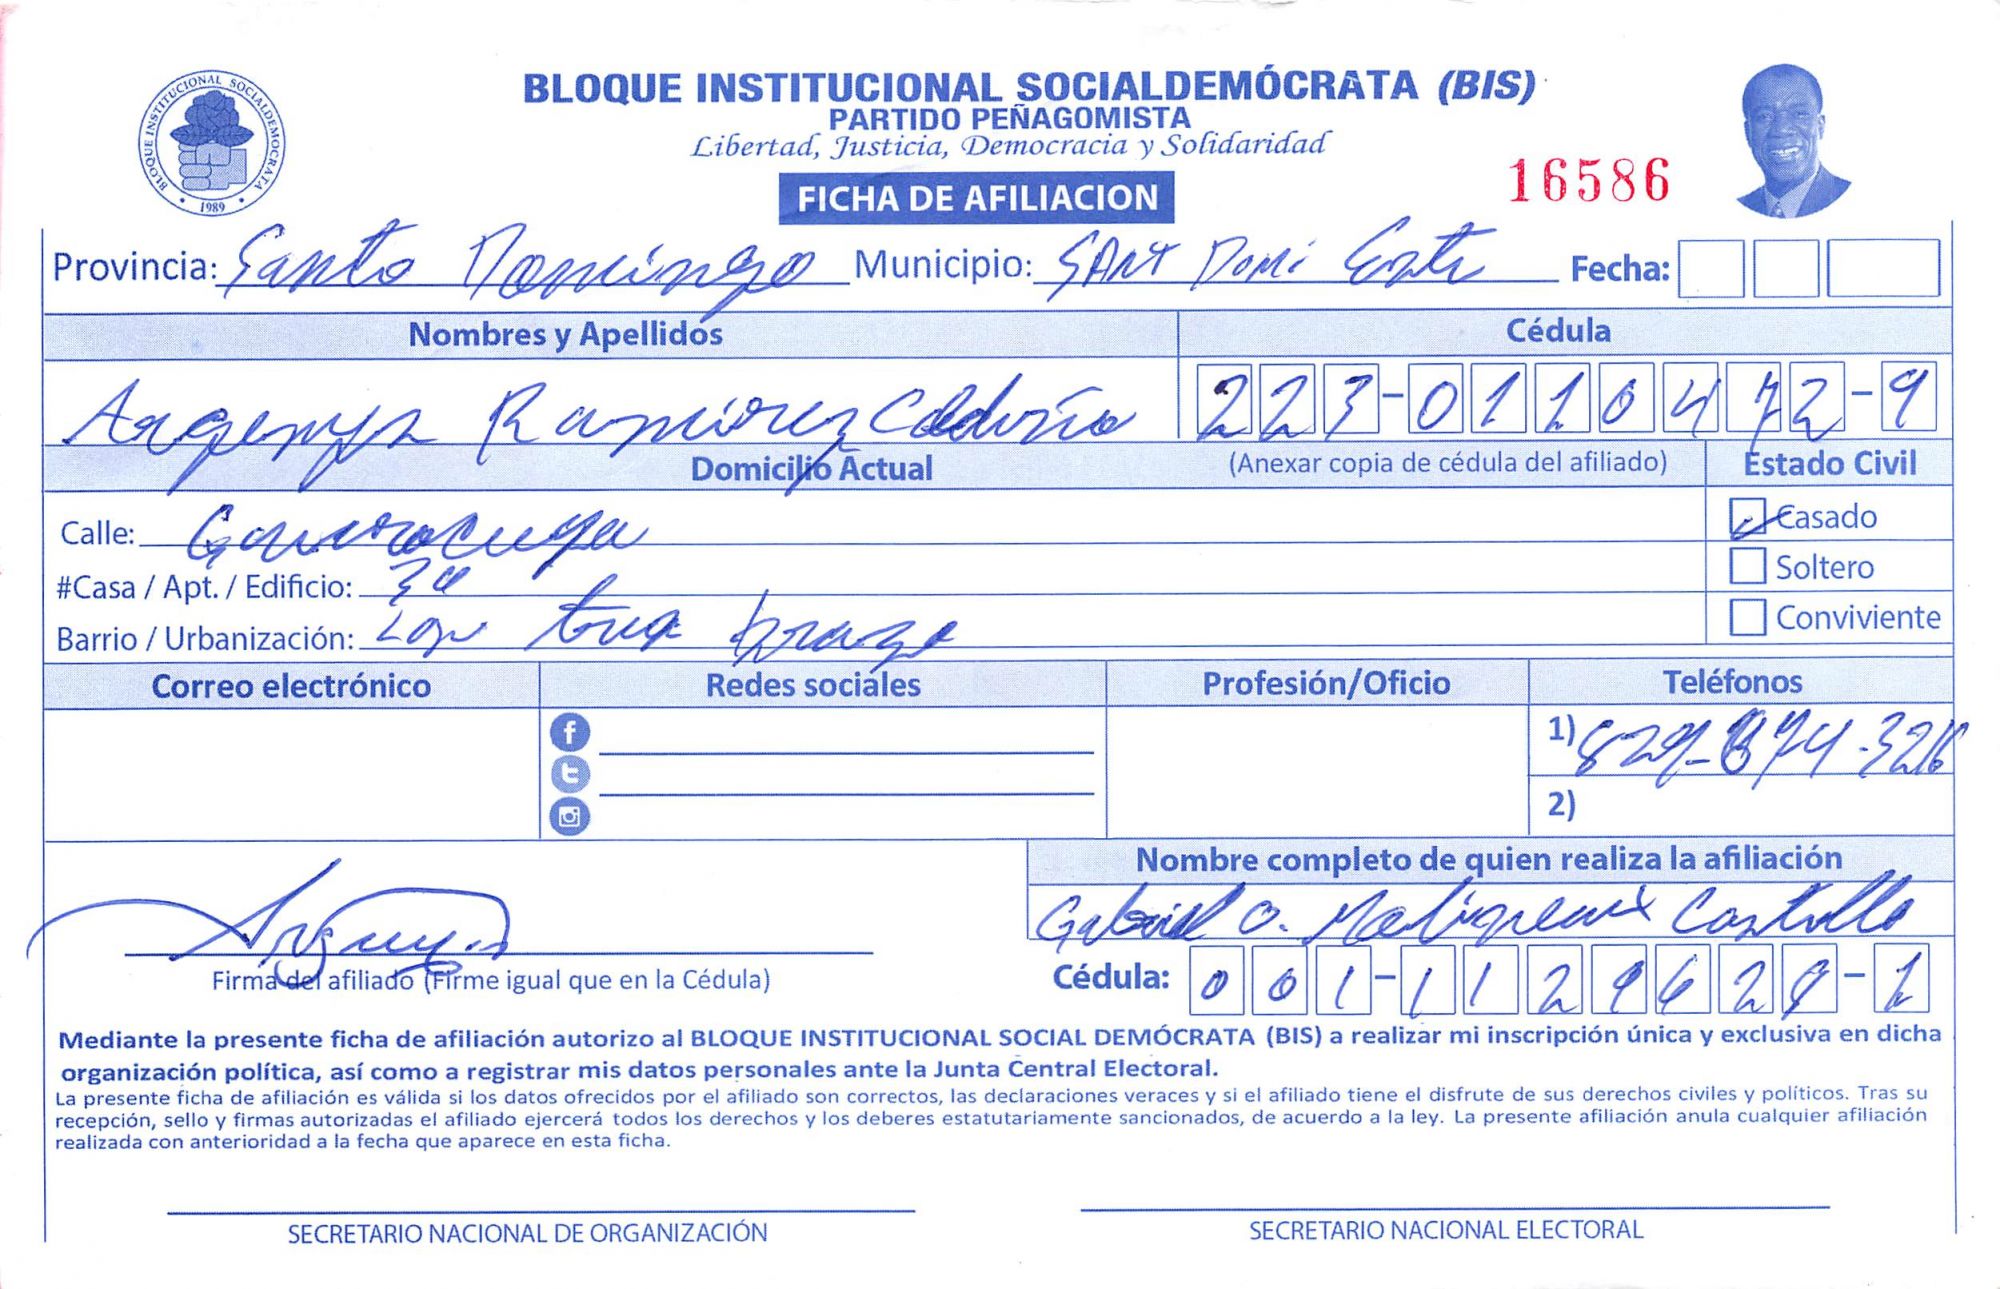 BLOQUE INSTITUCIONAL SOCIALDEMÓCRATA (BIS)
PARTIDO PEÑAGOMISTA
Libertad, Justicia, Democracia y Solidaridad
BLOQUE INSTITUCIONAL SOCIALDEMOCRATA
1989
16586
FICHA DE AFILIACION
Provincia: Santo Domingo Municipio: SANT Domi Este Fecha:
Nombres y Apellidos Cédula
Argenys Ramirez 223-0110472-9
Domicilio Actual (Anexar copia de cédula del afiliado) Estado Civil
Calle: Casado
#Casa / Apt. / Edificio: Soltero
Barrio / Urbanización: Los tres brazo Conviviente
Correo electrónico Redes sociales Profesión/Oficio Teléfonos
1)
2)
Nombre completo de quien realiza la afiliación
Gabriel O. Castillo
Firma del afiliado (Firme igual que en la Cédula) Cédula: 001-11
Mediante la presente ficha de afiliación autorizo al BLOQUE INSTITUCIONAL SOCIAL DEMÓCRATA (BIS) a realizar mi inscripción única y exclusiva en dicha
organización política, así como a registrar mis datos personales ante la Junta Central Electoral.
La presente ficha de afiliación es válida si los datos ofrecidos por el afiliado son correctos, las declaraciones veraces y si el afiliado tiene el disfrute de sus derechos civiles y políticos. Tras su
recepción, sello y firmas autorizadas el afiliado ejercerá todos los derechos y los deberes estatutariamente sancionados, de acuerdo a la ley. La presente afiliación anula cualquier afiliación
realizada con anterioridad a la fecha que aparece en esta ficha.
SECRETARIO NACIONAL DE ORGANIZACIÓN SECRETARIO NACIONAL ELECTORAL